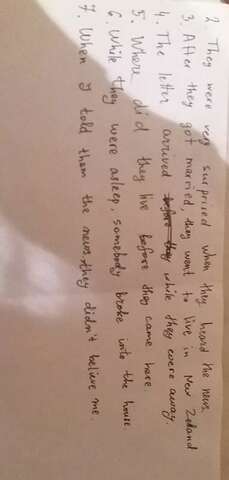 2. They were very surprised when they heard the news.
3. After they got married, they went to live in New Zeland
4. The letter arrived before they while they were away.
5. Where did they live before they came here
6. While they were asleep, somebody broke into the house
7. When I told them the news they didn't believe me.